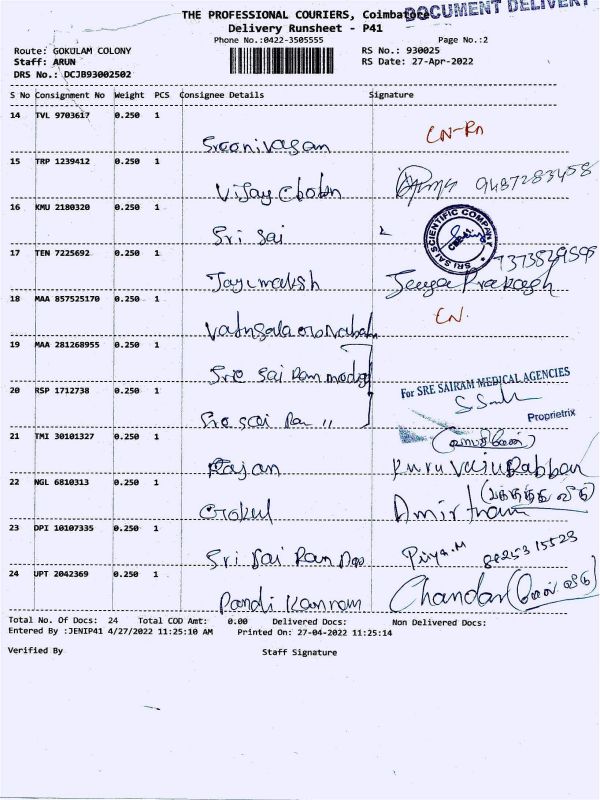 THE PROFESSIONAL COURIERS, Coimbatore
DOCUMENT DELIVERY
Delivery Runsheet - P41
Phone No.:0422-3505555
Page No.:2
Route: GOKULAM COLONY
RS No.: 930025
Staff: ARUN
RS Date: 27-Apr-2022
DRS No.: DCJB93002502
S No Consignment No Weight PCS Consignee Details Signature
14 TVL 9703617 0.250 1
Sreenivasan CN-Rn
15 TRP 1239412 0.250 1
Vijay 9487283458
16 KMU 2180320 0.250 1
Sri Sai
SRI SAI SCIENTIFIC COMPANY
17 TEN 7225692 0.250 1
7373539595
Jeeya Prakash
18 MAA 857525170 0.250 1
CN.
19 MAA 281268955 0.250 1
Sree Sai Ram
For SRE SAIRAM MEDICAL AGENCIES
20 RSP 1712738 0.250 1
Proprietrix
Sree Sai Ram "
21 TMI 30101327 0.250 1
Rajan
22 NGL 6810313 0.250 1
Gokul Amirtham
23 DPI 10107335 0.250 1
Sri Sai Ram Priya.M 8825315523
24 UPT 2042369 0.250 1
Pandi Chandar
Total No. Of Docs: 24 Total COD Amt: 0.00 Delivered Docs: Non Delivered Docs:
Entered By :JENIP41 4/27/2022 11:25:10 AM Printed On: 27-04-2022 11:25:14
Verified By Staff Signature